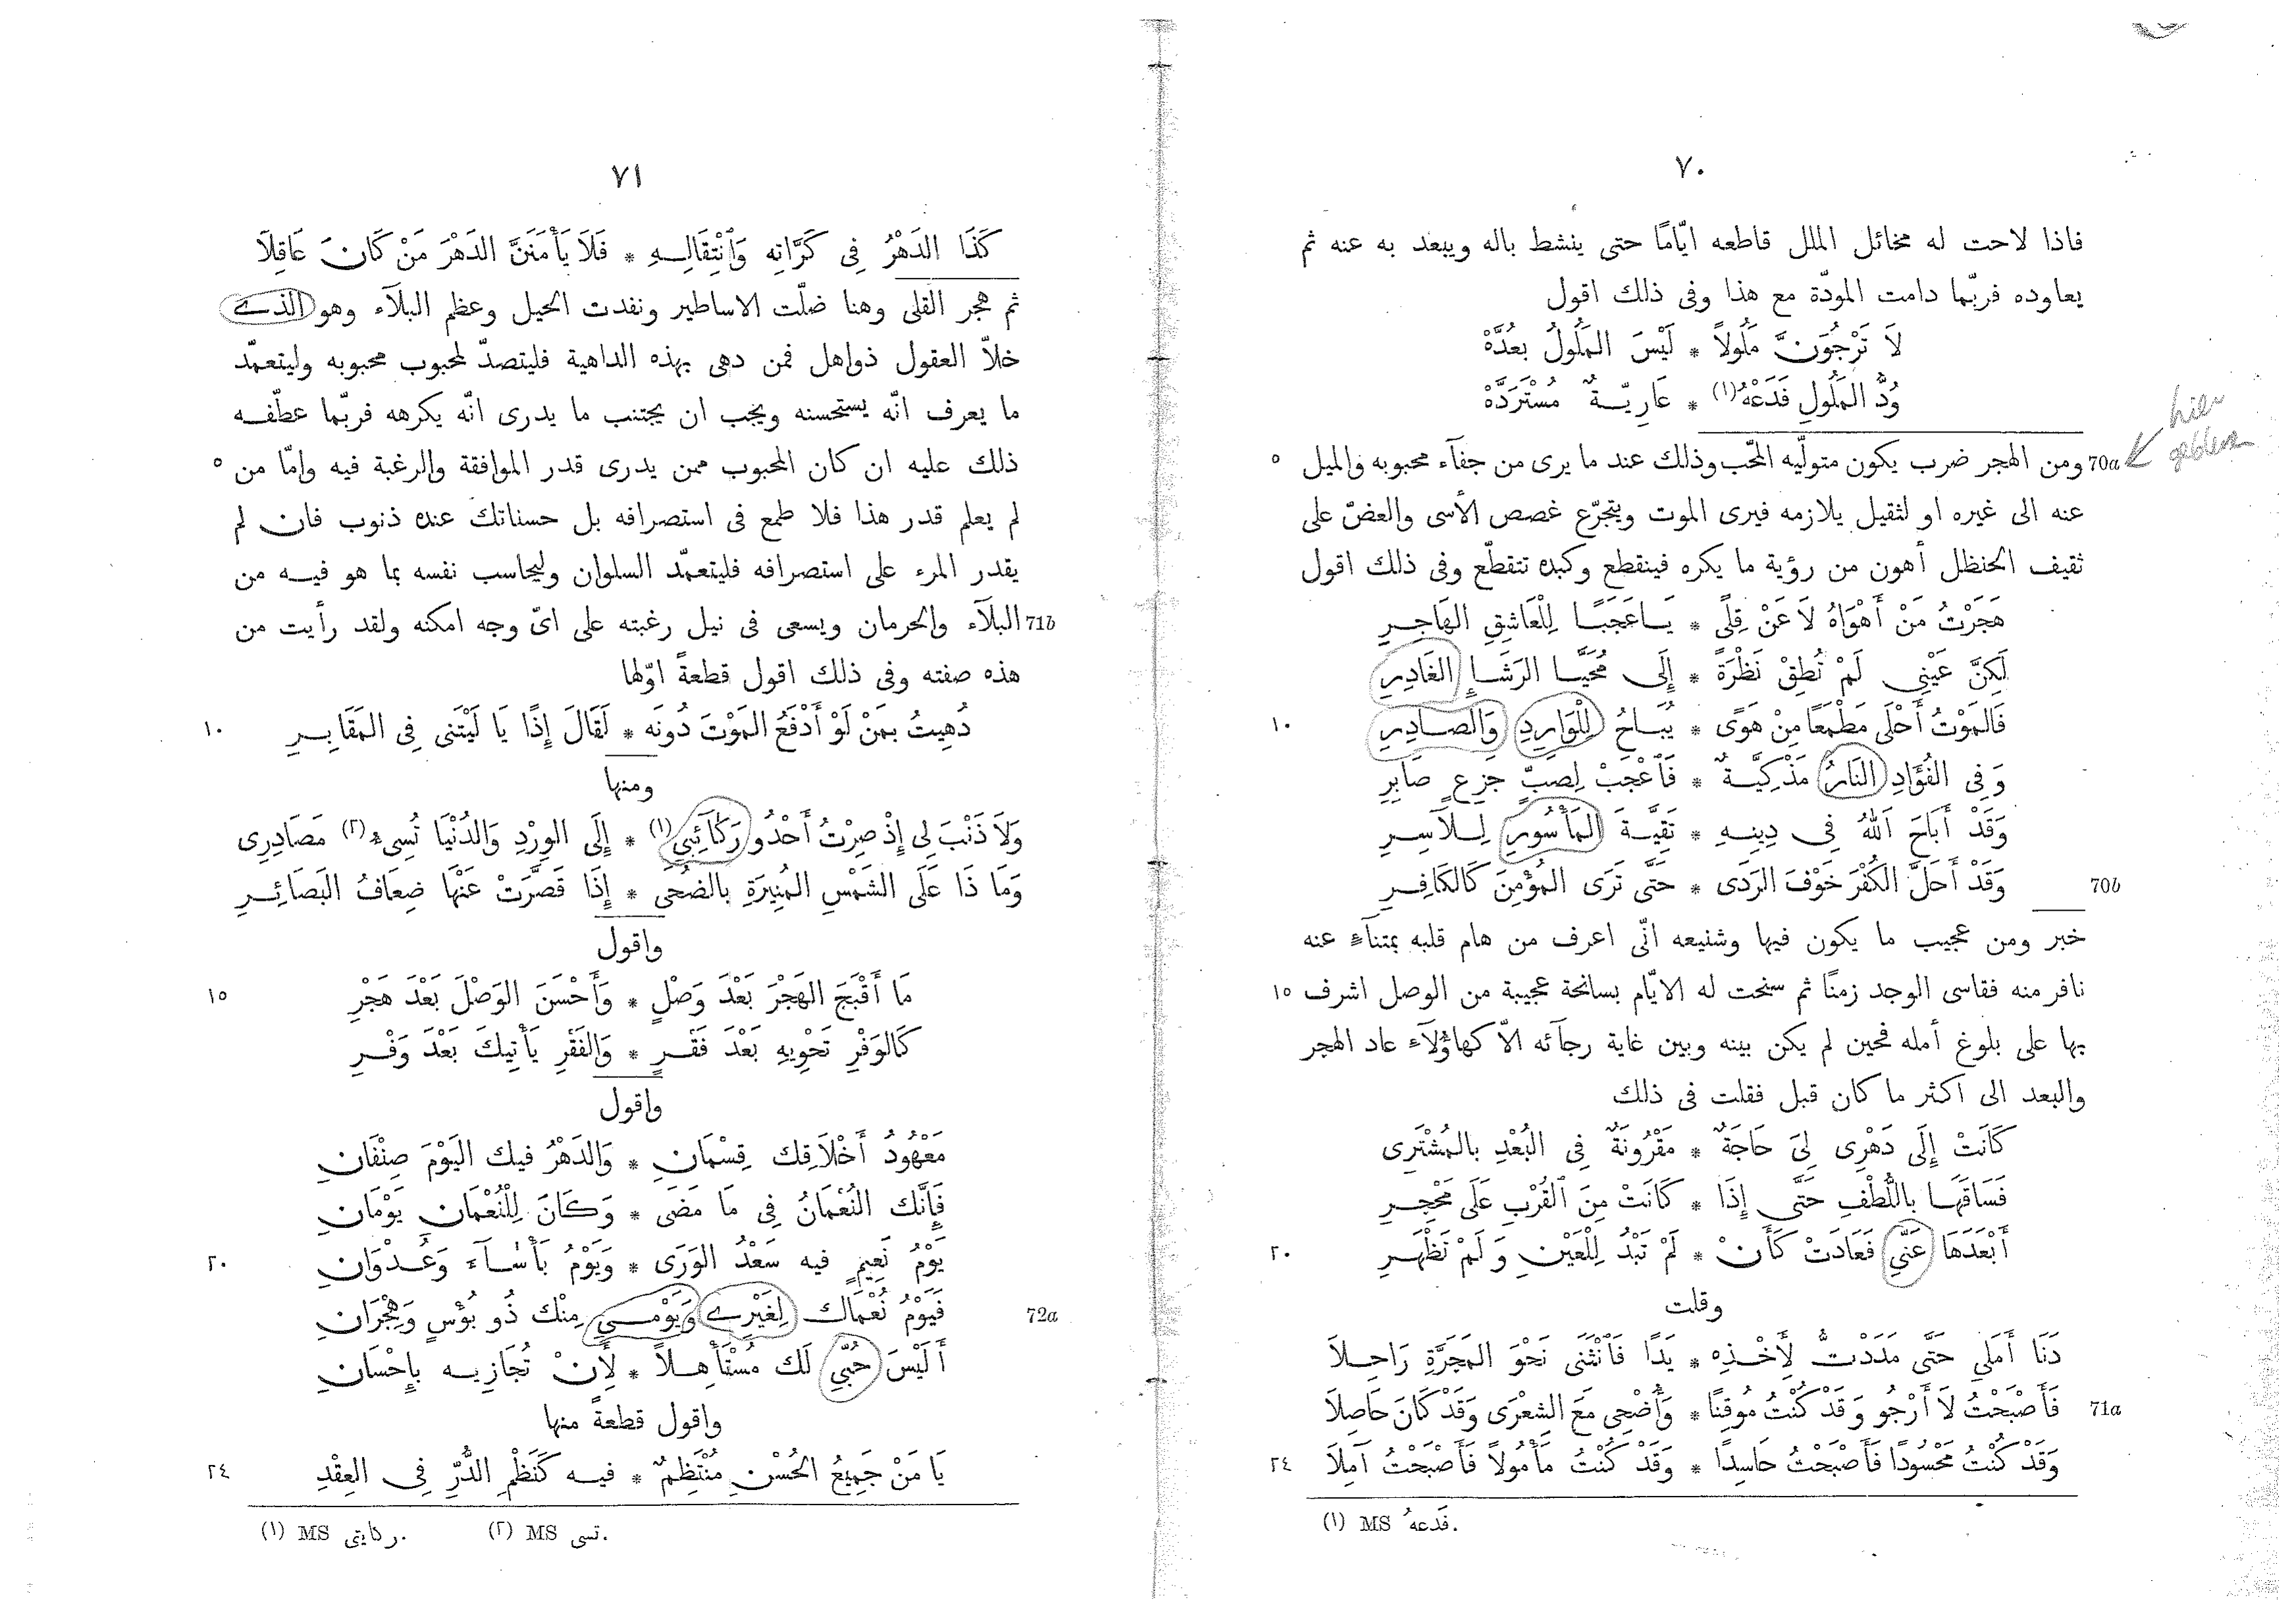 ٧٠
فاذا لاحت له مخائل الملل قاطعه ايّامًا حتى ينشط باله ويبعد به عنه ثم
يعاوده فربّما دامت المودّة مع هذا وفى ذلك اقول
لَا تَرْجُوَنَّ مَلُولاً * لَيْسَ المَلُولُ بعُدَّهْ
وُدُّ المَلُولِ فَدَعْهُ(١) * عَارِيّـةٌ مُسْتَرَدَّهْ
hier geblieben
70a ومن الهجر ضرب يكون متولّيه المحّب وذلك عند ما يرى من جفآء محبوبه والميل ٥
عنه الى غيره او لثقيل يلازمه فيرى الموت ويتجرّع غصص الأسى والعضّ على
ثقيف الحنظل أهون من رؤية ما يكره فينقطع وكبده تتقطّع وفى ذلك اقول
هَجَرْتُ مَنْ أَهْوَاهُ لَا عَنْ قِلًى * يَـاعَجَبَـا لِلْعَاشِقِ الهَاجِـرِ
لَكِنَّ عَيْنِى لَمْ تُطِقْ نَظْرَةً * إِلَى مُحَيَّـا الرَشَـإِ الغَادِرِ
فَالمَوْتُ أَحْلَى مَطْمَعًا مِنْ هَوًى * يُبَـاحُ لِلْوَارِدِ وَالصـادِرِ ١٠
وَفِى الفُؤَادِ النَارُ مَذْكِيَّـةٌ * فَٱعْجَبْ لِصبٍّ جَزِعٍ صَابِرِ
وَقَدْ أَبَاحَ اللهُ فِى دِينِـهِ * تَقِيَّـةَ المَأْسُورِ لِـلآسِـرِ
70b وَقَدْ أَحَلَّ الكُفْرَ خَوْفَ الرَدَى * حَتَّى تَرَى المُؤْمِنَ كَالكَافِـرِ
خبر ومن عجيب ما يكون فيها وشنيعه انّى اعرف من هام قلبه بمتنآءٍ عنه
نافر منه فقاسى الوجد زمنًا ثم سنحت له الايّام بسانحة عجيبة من الوصل اشرف ١٥
بها على بلوغ أمله فحين لم يكن بينه وبين غاية رجآئه الاّ كهاؤلآء عاد الهجر
والبعد الى اكثر ما كان قبل فقلت فى ذلك
كَانَتْ إِلَى دَهْرِى لِىَ حَاجَةٌ * مَقْرُونَةٌ فِى البُعْدِ بالمُشْتَرِى
فَسَاقَهَـا باللُّطْفِ حَتَّى إِذَا * كَانَتْ مِنَ ٱلقُرْبِ عَلَى مَحْجِـرِ
أَبْعَدَهَا عَنِّي فَعَادَتْ كَأَنْ * لَمْ تَبْدُ لِلْعَيْنِ وَلَمْ تَظْهَـرِ ٢٠
وقلت
دَنَا أَمَلِى حَتَّى مَدَدْتُ لِأَخْـذِهِ * يَدًا فَٱنْثَنَى نَحْوَ المَجَرَّةِ رَاحِـلاَ
71a فَأَصْبَحْتُ لاَ أَرْجُو وَقَدْ كُنْتُ مُوقِنًا * وَأَضْحِى مَعَ الشِعْرَى وَقَدْ كَانَ حَاصِلاَ
وَقَدْ كُنْتُ مَحْسُودًا فَأَصْبَحْتُ حَاسِدًا * وَقَدْ كُنْتُ مَأْمُولاً فَأَصْبَحْتُ آمِلاَ ٢٤
(١) MS فَدعهُ.
٧١
كَذَا الدَهْرُ فِى كَرَّاتِه وَٱنْتِقَالِـهِ * فَلاَ يَأْمَنَنَّ الدَهْرَ مَنْ كَانَ عَاقِلاَ
ثم هجر القلى وهنا ضلّت الاساطير ونفدت الحيل وعظم البلآء وهو الذى
خلاّ العقول ذواهل فمن دهى بهذه الداهية فليتصدّ لمحبوب محبوبه وليتعمّد
ما يعرف انّه يستحسنه ويجب ان يجتنب ما يدرى انّه يكرهه فربّما عطّفـه
ذلك عليه ان كان المحبوب ممن يدرى قدر الموافقة والرغبة فيه وامّا من ٥
لم يعلم قدر هذا فلا طمع فى استصرافه بل حسناتك عنده ذنوب فان لم
يقدر المرء على استصرافه فليتعمّد السلوان وليحاسب نفسه بما هو فيـه من
71b البلآء والحرمان ويسعى فى نيل رغبته على اىّ وجه امكنه ولقد رأيت من
هذه صفته وفى ذلك اقول قطعةً اوّلها
دُهِيتُ بمَنْ لَوْ أَدْفَعُ المَوْتَ دُونَه * لَقَالَ إِذًا يَا لَيْتَنِى فِى المَقَابِـرِ ١٠
ومنها
وَلاَ ذَنْبَ لِى إِذْ صِرْتُ أَحْدُو رَكَآئِبِي(١) * إِلَى الوِرْدِ وَالدُنْيَا تُسِىءُ(٢) مَصَادِرِى
وَمَا ذَا عَلَى الشَمْسِ المُنِيرَةِ بالضُحَى * إِذَا قَصَّرَتْ عَنْهَا ضِعَافُ البَصَائِـرِ
واقول
مَا أَقْبَحَ الهَجْرَ بَعْدَ وَصْلٍ * وَأَحْسَنَ الوَصْلَ بَعْدَ هَجْرِ ١٥
كَالوَفْرِ تَحْوِيهِ بَعْدَ فَقْـرٍ * وَالفَقْرِ يَأْتِيكَ بَعْدَ وَفْـرِ
واقول
مَعْهُودُ أَخْلاَقِك قِسْمَانِ * وَالدَهْرُ فيك اليَوْمَ صِنْفَانِ
فَإِنَّك النُعْمَانُ فِى مَا مَضَى * وَكَانَ لِلْنُعْمَانِ يَوْمَانِ
يَوْمُ نَعِيمٍ فيه سَعْدُ الوَرَى * وَيَوْمُ بَأْسَـآءَ وَعُـدْوَانِ ٢٠
72a فَيَوْمُ نُعْمَاك لِغَيْرِى وَيَوْمِـى مِنْك ذُو بُؤْسٍ وَهِجْرَانِ
أَلَيْسَ حُبِّي لَك مُسْتَأْهِـلاً * لِأَنْ تُجَازِيـه بإِحْسَانِ
واقول قطعةً منها
يَا مَنْ جَمِيعُ الحُسْنِ مُنْتَظِمٌ * فيـه كَنَظْمِ الدُّرِّ فِى العِقْدِ ٢٤
(١) MS ركايتى. (٢) MS تسى.